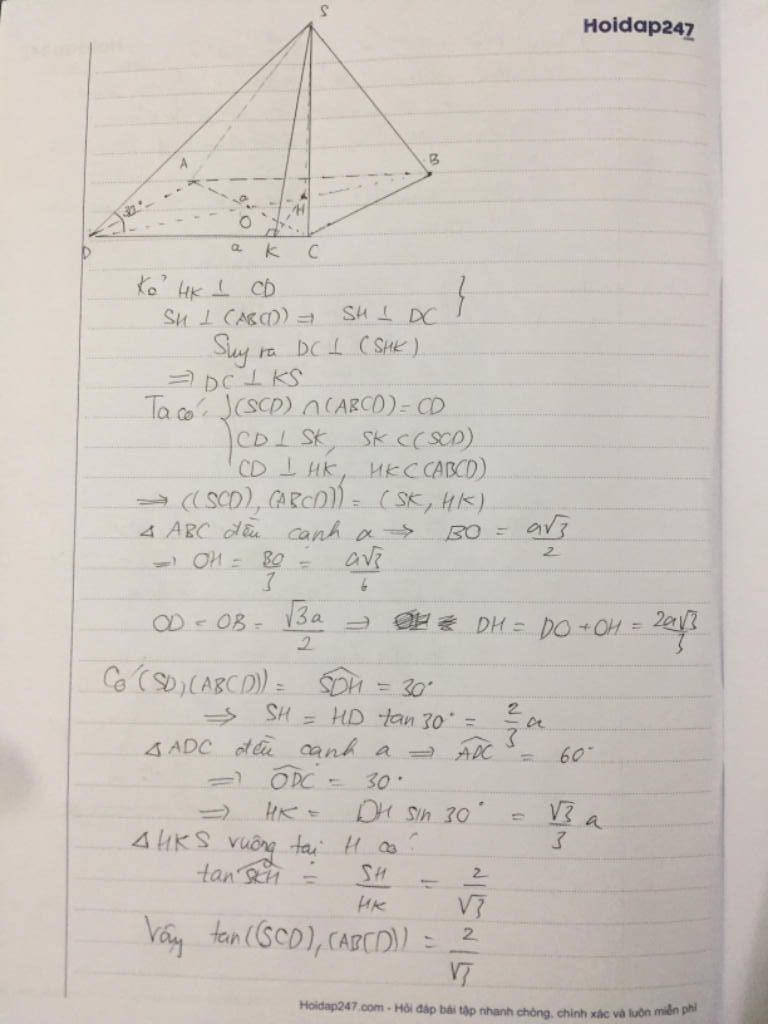 Hoidap247
S
A
B
30°
a
H
O
D
a
K
C
Kẻ HK ⊥ CD
SH ⊥ (ABCD) ⇒ SH ⊥ DC
}
Suy ra DC ⊥ (SHK)
⇒ DC ⊥ KS
Ta có: { (SCD) ∩ (ABCD) = CD
CD ⊥ SK, SK ⊂ (SCD)
CD ⊥ HK, HK ⊂ (ABCD)
⇒ ((SCD), (ABCD)) = (SK, HK)
Δ ABC đều cạnh a ⇒ BO = a√3/2
⇒ OH = BO/3 = a√3/6
OD = OB = √3a/2 ⇒ DH = DO + OH = 2a√3/3
Có (SD, (ABCD)) = SDH = 30°
⇒ SH = HD tan 30° = 2/3 a
Δ ADC đều cạnh a ⇒ ADC = 60°
⇒ ODC = 30°
⇒ HK = DH sin 30° = √3/3 a
Δ HKS vuông tại H có:
tan SKH = SH/HK = 2/√3
Vậy tan((SCD), (ABCD)) = 2/√3
Hoidap247.com - Hỏi đáp bài tập nhanh chóng, chính xác và luôn miễn phí